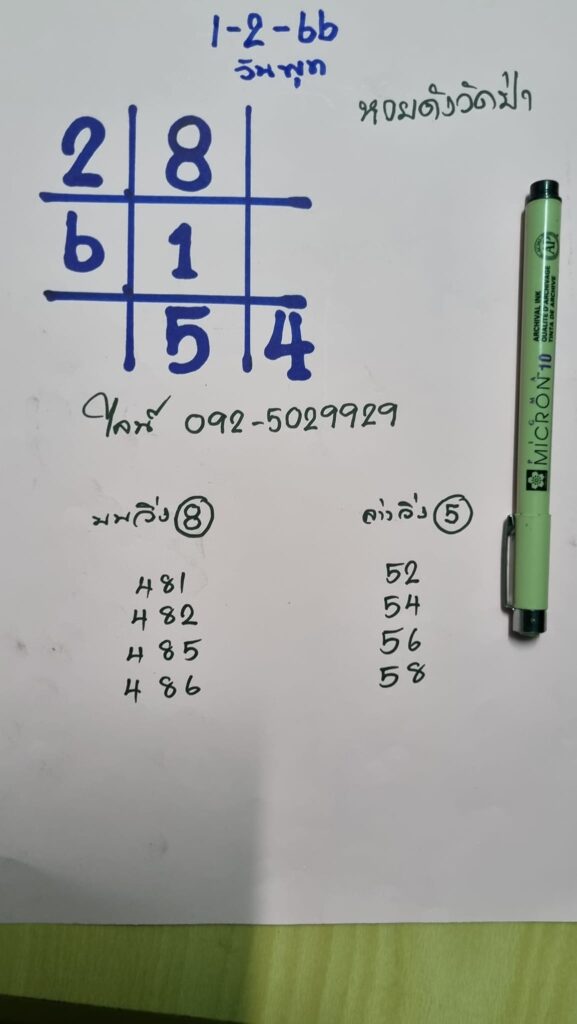 1-2-66
วันพุธ
หวยดังวัดป่า
2 8
6 1
5 4
ไลน์ 092-5029929
บนวิ่ง 8
ล่างวิ่ง 5
481
482
485
486
52
54
56
58
PIGMA
MICRON 10
ARCHIVAL INK
QUALITE D'ARCHIVAGE
TINTA DE ARCHIVE
AP